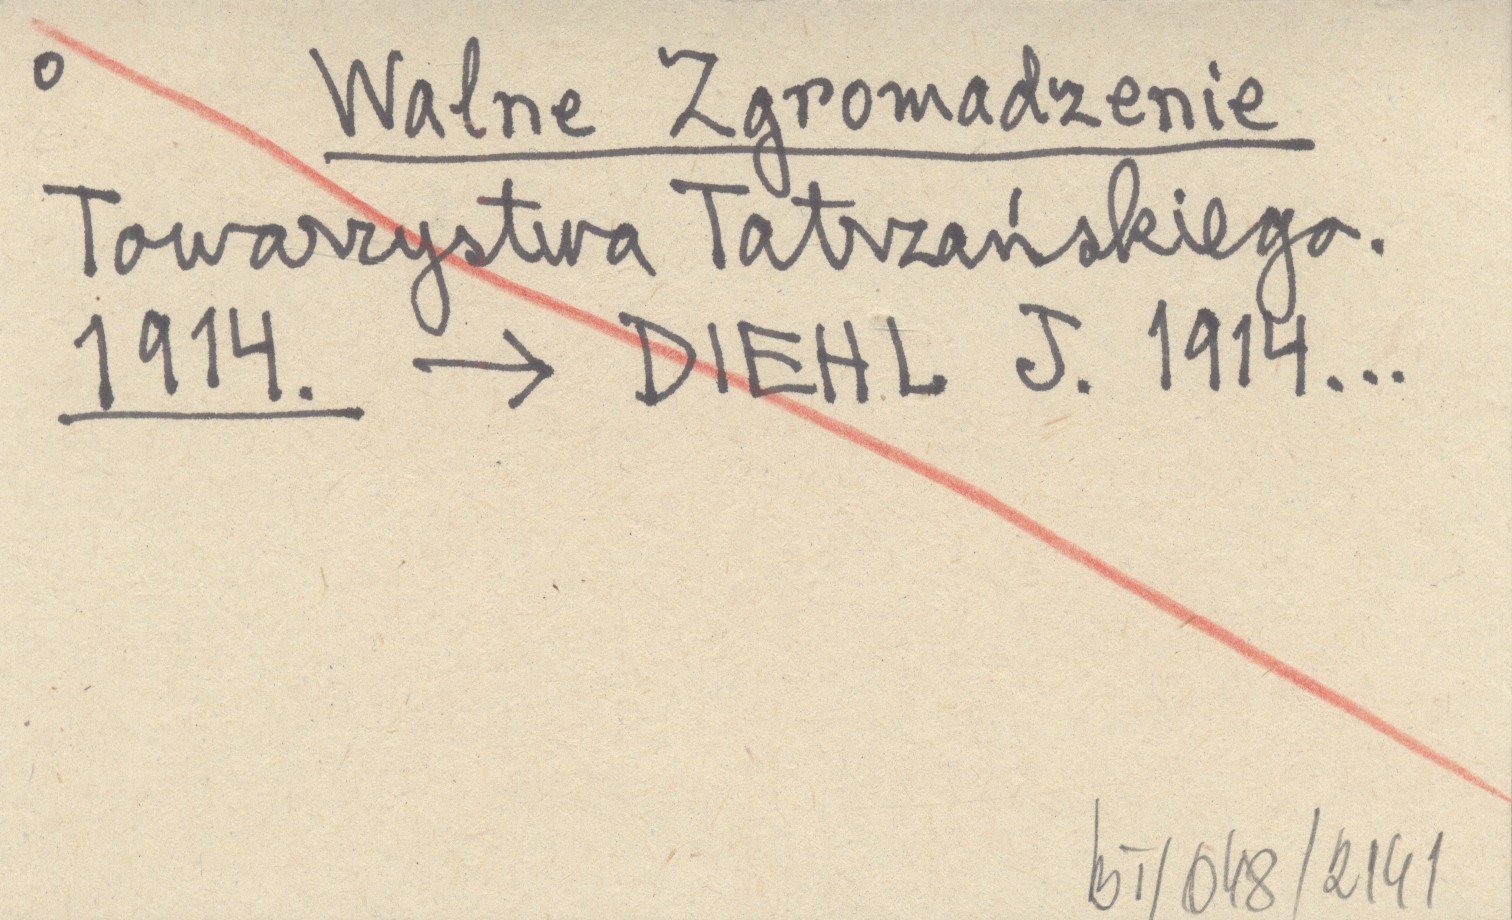 o Walne Zgromadzenie
Towarzystwa Tatrzańskiego.
1914. → DIEHL J. 1914...
bI/048/2141